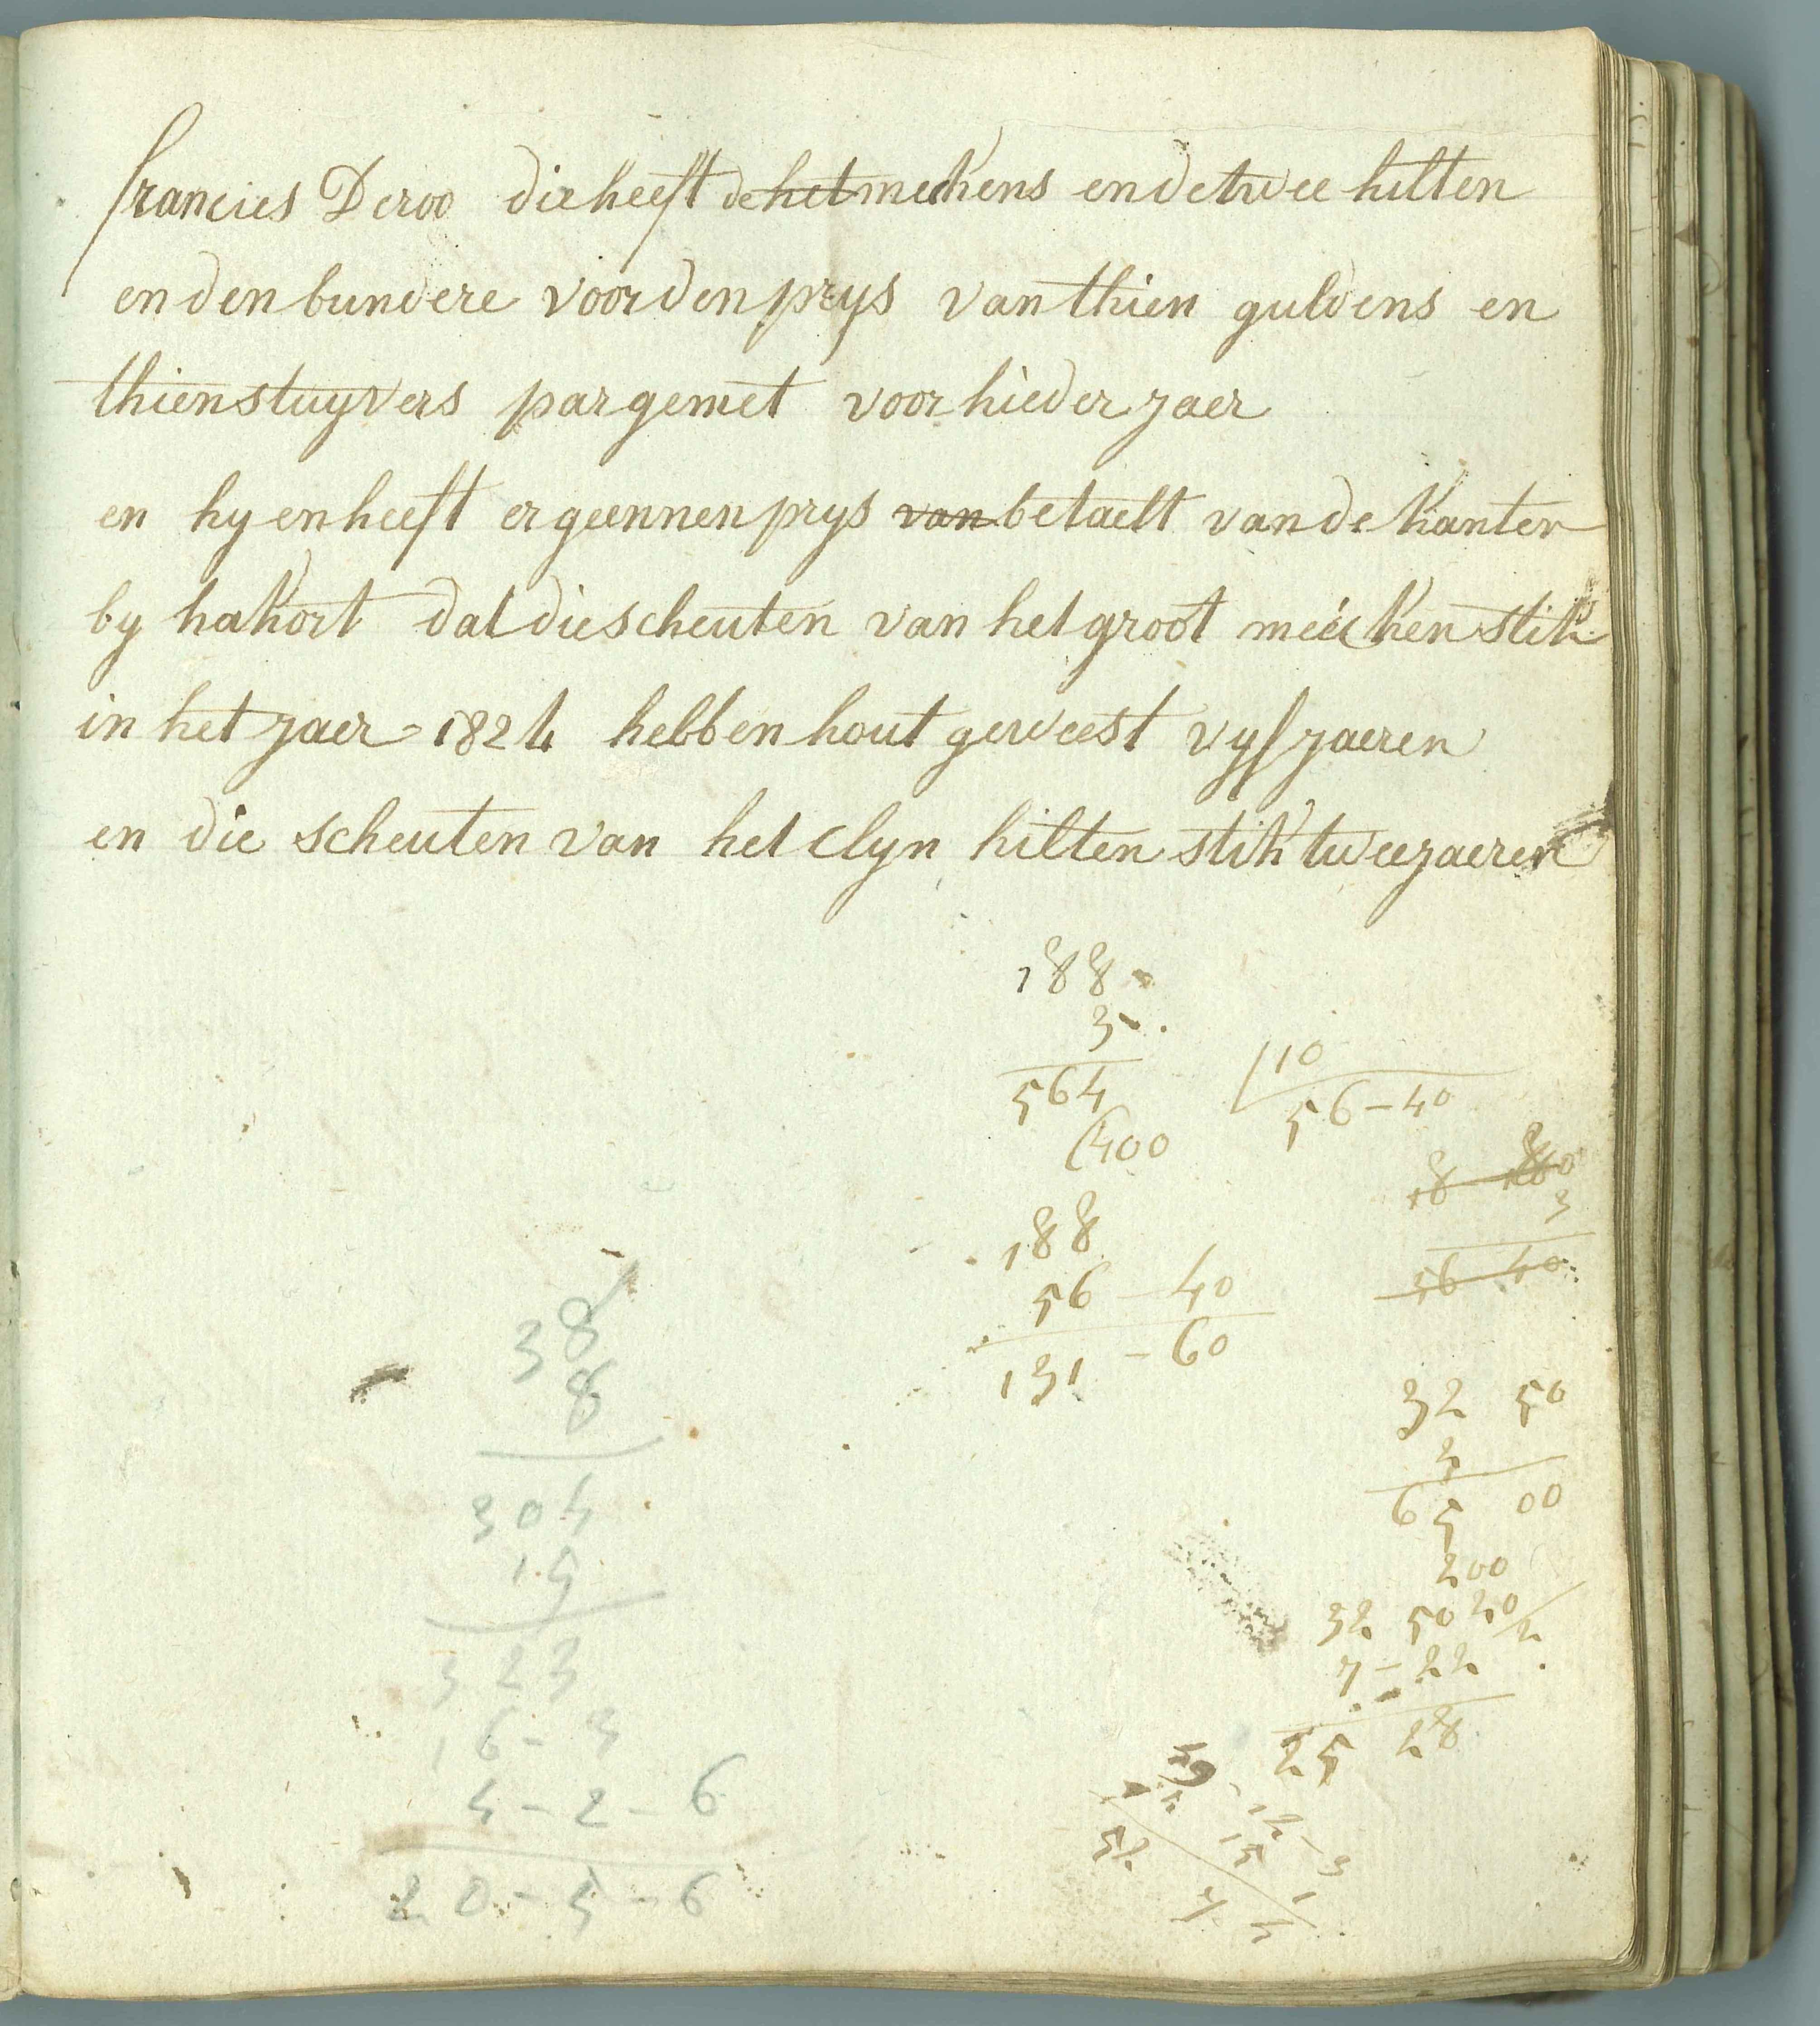 francies Deroo die heeft de het meckens en de twee hilten
en den bundere voor den prys van thien guldens en
thien stuyvers par gemet voor hieder jaer
en hy en heeft er geennen prys van betaelt van de kanten
by hakort dat die scheuten van het groot meicken stik
in het jaer 1824 hebben hout geweest vyf jaeren
en die scheuten van het clyn hilten stik twee jaeren
188
3
564
10
56-40
(400
18 80
3
56 40
188
56 - 40
131 - 60
32 50
2
65 00
200
32 50 20
2
7-22
25 28
38
8
304
19
323
16-3
4-2-6
20-5-6